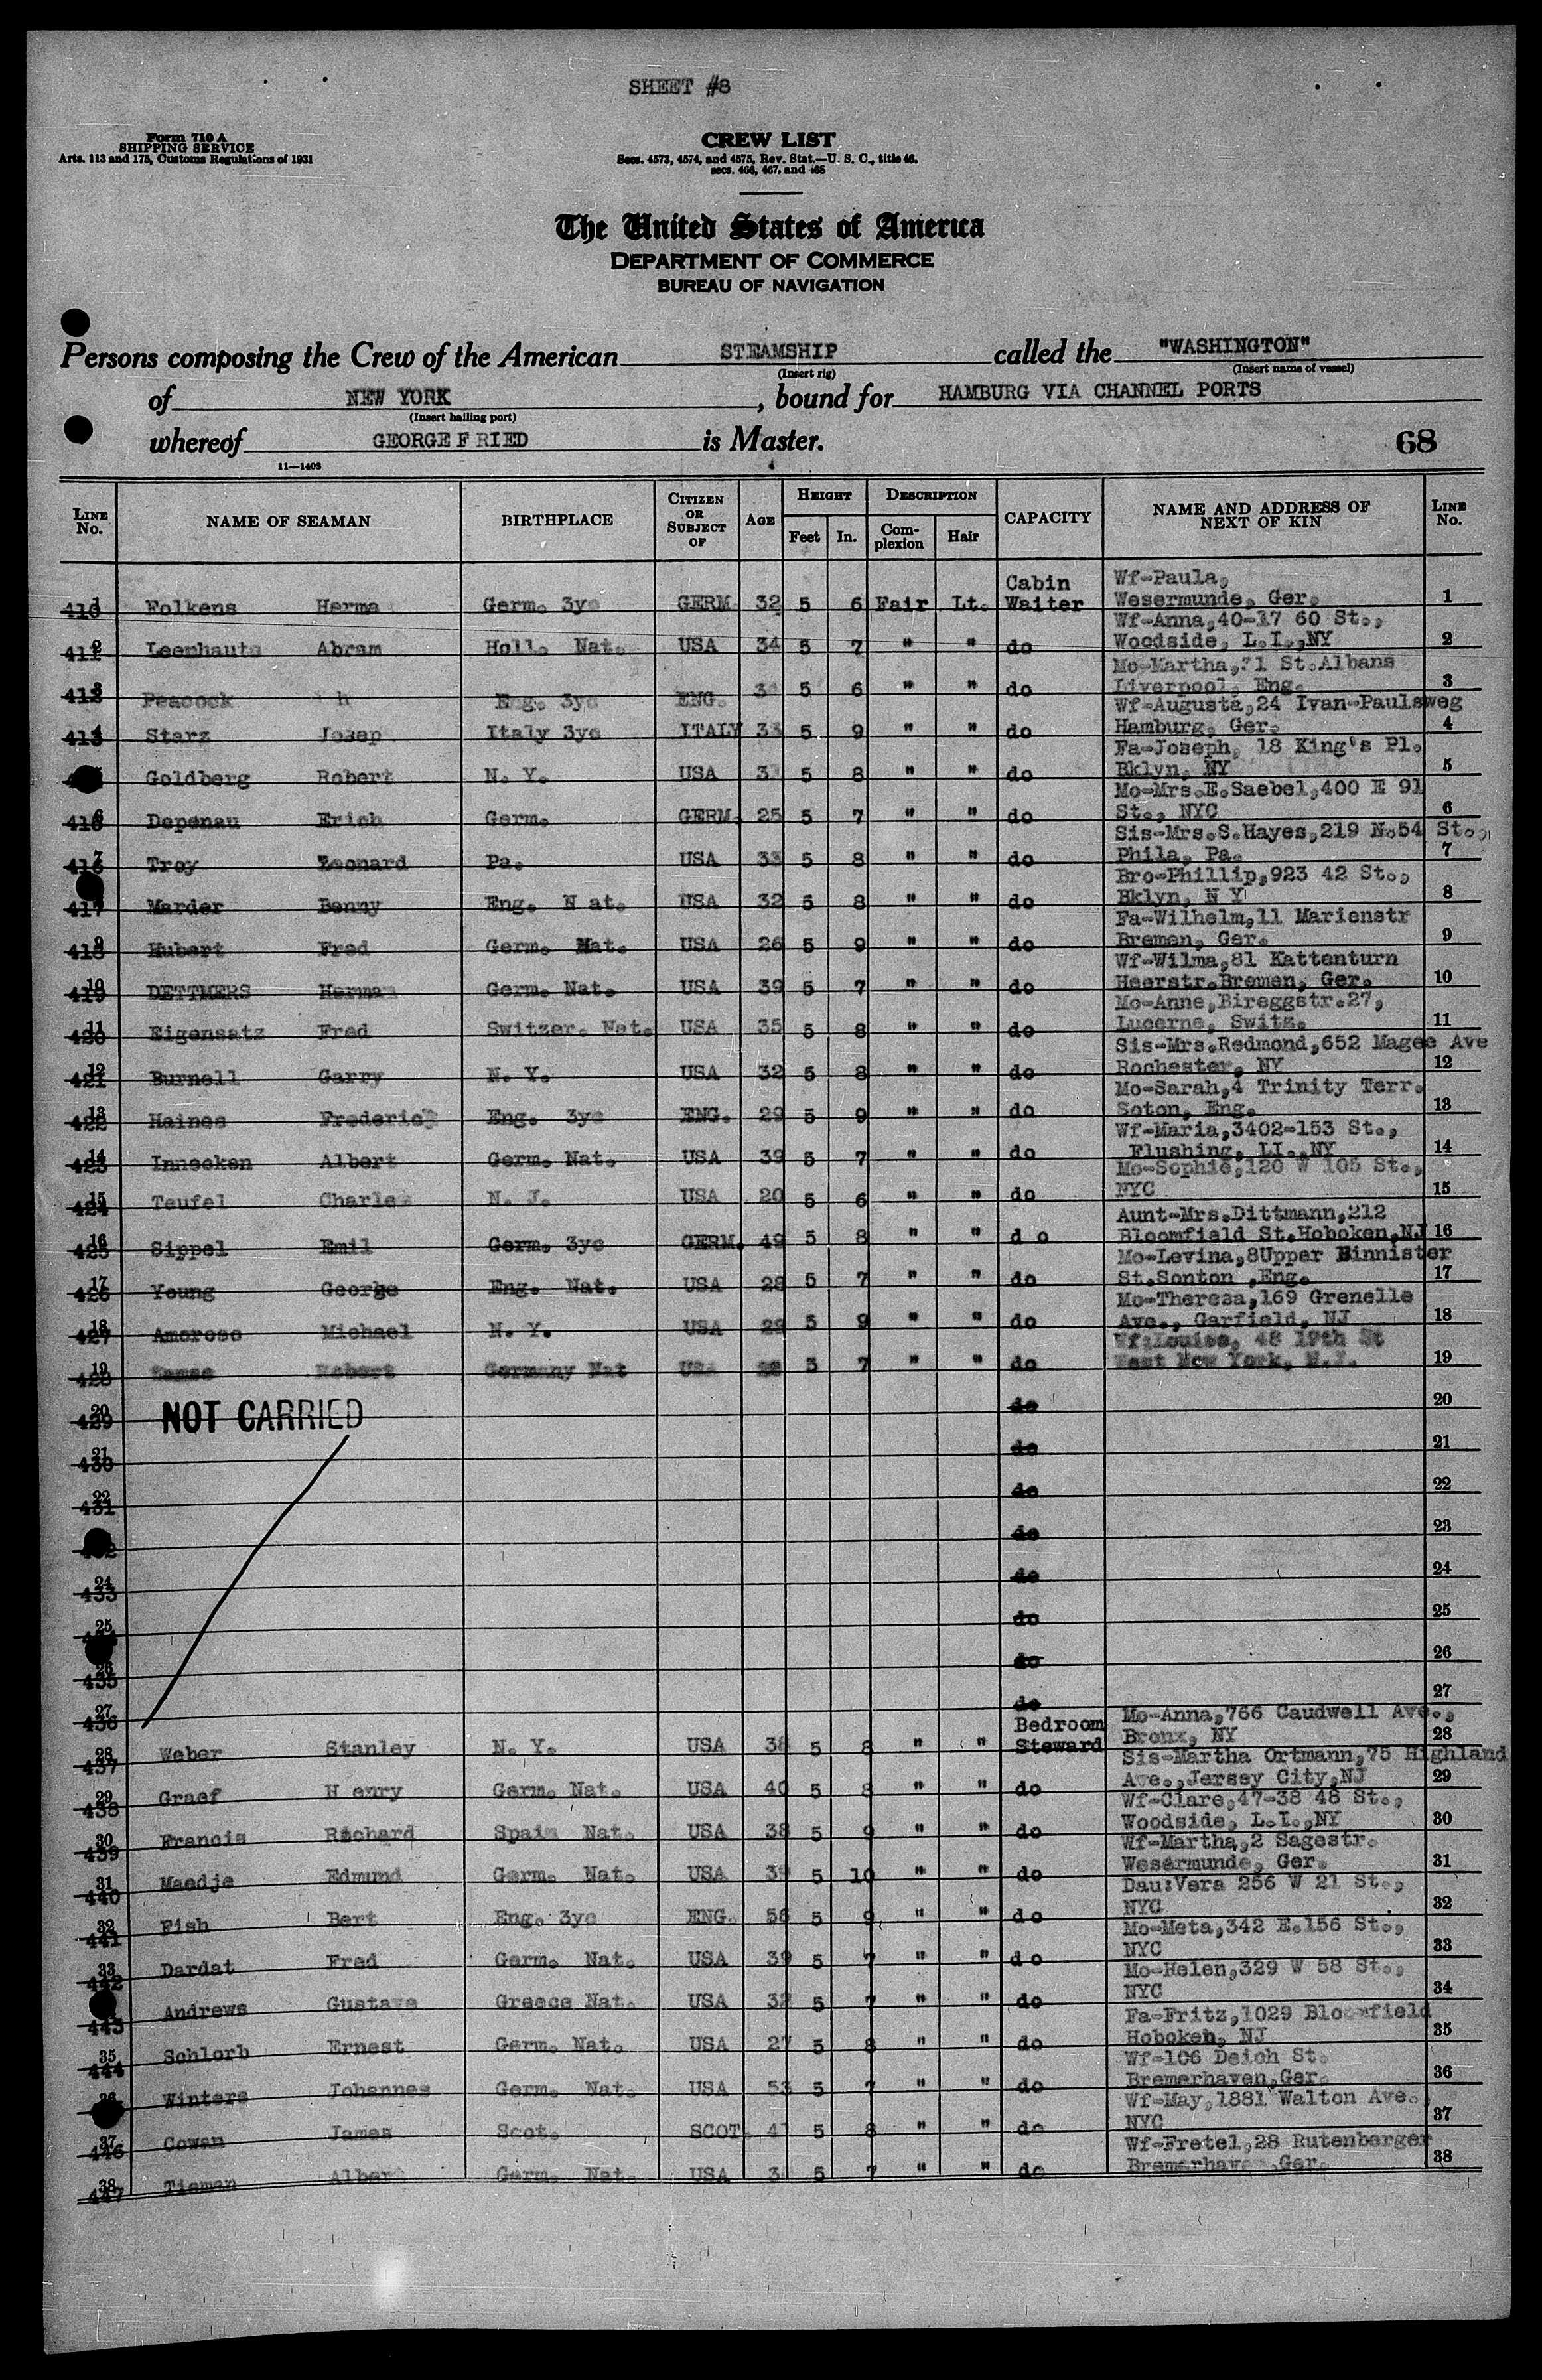 SHEET #8
Form 710 A
SHIPPING SERVICE
Arts. 113 and 175, Customs Regulations of 1931
CREW LIST
Secs. 4573, 4574, and 4575, Rev. Stat.—U. S. C., title 46,
secs. 466, 467, and 465
The United States of America
DEPARTMENT OF COMMERCE
BUREAU OF NAVIGATION
Persons composing the Crew of the American STEAMSHIP called the "WASHINGTON"
(Insert rig) (Insert name of vessel)
of NEW YORK, bound for HAMBURG VIA CHANNEL PORTS
(Insert hailing port)
whereof GEORGE F RIED is Master. 68
11—1403
LINE No. NAME OF SEAMAN BIRTHPLACE CITIZEN OR SUBJECT OF AGE HEIGHT Feet In. DESCRIPTION Complexion Hair CAPACITY NAME AND ADDRESS OF NEXT OF KIN LINE No.
Cabin Wf-Paula,
410 1 Folkens Herma Germ. 3yc GERM. 32 5 6 Fair Lt. Waiter Wesermunde, Ger. 1
Wf-Anna,40-17 60 St.,
411 2 Leenhauts Abram Holl. Nat. USA 34 5 7 " " do Woodside, L.I.,NY 2
Mo-Martha,31 St.Albans
412 3 Peacock Eng. 3yc ENG. 5 6 " " do Liverpool, Eng. 3
Wf-Augusta,24 Ivan-Paulsweg
413 4 Starz Josep Italy 3yc ITALY 33 5 9 " " do Hamburg, Ger. 4
Fa-Joseph, 18 King's Pl.
Goldberg Robert N. Y. USA 5 8 " " do Bklyn, NY 5
Mo-Mrs.E.Saebel,400 E 91
6 Depenau Erich Germ. GERM. 25 5 7 " " do St., NYC 6
Sis-Mrs.S.Hayes,219 N.54 St.,
416 7 Troy Leonard Pa. USA 33 5 8 " " do Phila, Pa. 7
Bro-Phillip,923 42 St.,
417 Marder Benny Eng. N at. USA 32 5 8 " " do Bklyn, N Y 8
Fa-Wilhelm,11 Marienstr
418 9 Hubert Fred Germ. Nat. USA 26 5 9 " " do Bremen, Ger. 9
Wf-Wilma,81 Kattenturn
419 10 DETTMERS Herman Germ. Nat. USA 39 5 7 " " do Heerstr.Bremen, Ger. 10
Mo-Anne,Bireggstr.27,
420 11 Eigensatz Fred Switzer. Nat. USA 35 5 8 " " do Lucerne, Switz. 11
Sis-Mrs.Redmond,652 Magee Ave
421 12 Burnell Garry N. Y. USA 32 5 8 " " do Rochester, NY 12
Mo-Sarah,4 Trinity Terr.
422 13 Haines Frederick Eng. 3yc ENG. 29 5 9 " " do Soton, Eng. 13
Wf-Maria,3402-153 St.,
423 14 Innecken Albert Germ. Nat. USA 39 5 7 " " do Flushing, LI.,NY 14
Mo-Sophie,120 W 105 St.,
424 15 Teufel Charles N. J. USA 20 5 6 " " do NYC 15
Aunt-Mrs.Dittmann,212
425 16 Sippel Emil Germ. 3yc GERM. 49 5 8 " " d o Bloomfield St.Hoboken,NJ 16
Mo-Levina,8Upper Binnister
426 17 Young George Eng. Nat. USA 28 5 7 " " do St.Sonton ,Eng. 17
Mo-Theresa,169 Grenelle
427 18 Amoroso Michael N. Y. USA 28 5 9 " " do Ave., Garfield, NJ 18
Wf:Louise, 48 19th St
428 19 Robert Germany Nat USA 5 7 " " do West New York, N.J. 19
429 20 NOT CARRIED do 20
430 21 do 21
431 22 do 22
do 23
433 24 do 24
25 do 25
435 26 do 26
436 27 do 27
Bedroom Mo-Anna,766 Caudwell Ave.,
437 28 Weber Stanley N. Y. USA 38 5 8 " " Steward Bronx, NY 28
Sis-Martha Ortmann,75 Highland
438 29 Graef H enry Germ. Nat. USA 40 5 8 " " do Ave.,Jersey City,NJ 29
Wf-Clare,47-38 48 St.,
439 30 Francis Richard Spain Nat. USA 38 5 9 " " do Woodside, L.I.,NY 30
Wf-Martha,2 Sagestr.
440 31 Maedje Edmund Germ. Nat. USA 39 5 10 " " do Wesermunde, Ger. 31
Dau:Vera 256 W 21 St.,
441 32 Fish Bert Eng. 3yc ENG. 56 5 9 " " do NYC 32
Mo-Meta,342 E.156 St.,
442 33 Dardat Fred Germ. Nat. USA 39 5 7 " " do NYC 33
Mo-Helen,329 W 58 St.,
443 Andrews Gustave Greece Nat. USA 32 5 7 " " do NYC 34
Fa-Fritz,1029 Bloomfield
444 35 Schlorb Ernest Germ. Nat. USA 27 5 8 " " do Hoboken, NJ 35
Wf-106 Deich St.
36 Winters Johannes Germ. Nat. USA 53 5 7 " " do Bremerhaven,Ger. 36
Wf-May,1881 Walton Ave.
446 37 Cowan James Scot. SCOT. 41 5 8 " " do NYC 37
Wf-Fretel,28 Rutenberger
447 38 Tieman Albert Germ. Nat. USA 5 7 " " do Bremerhaven,Ger. 38